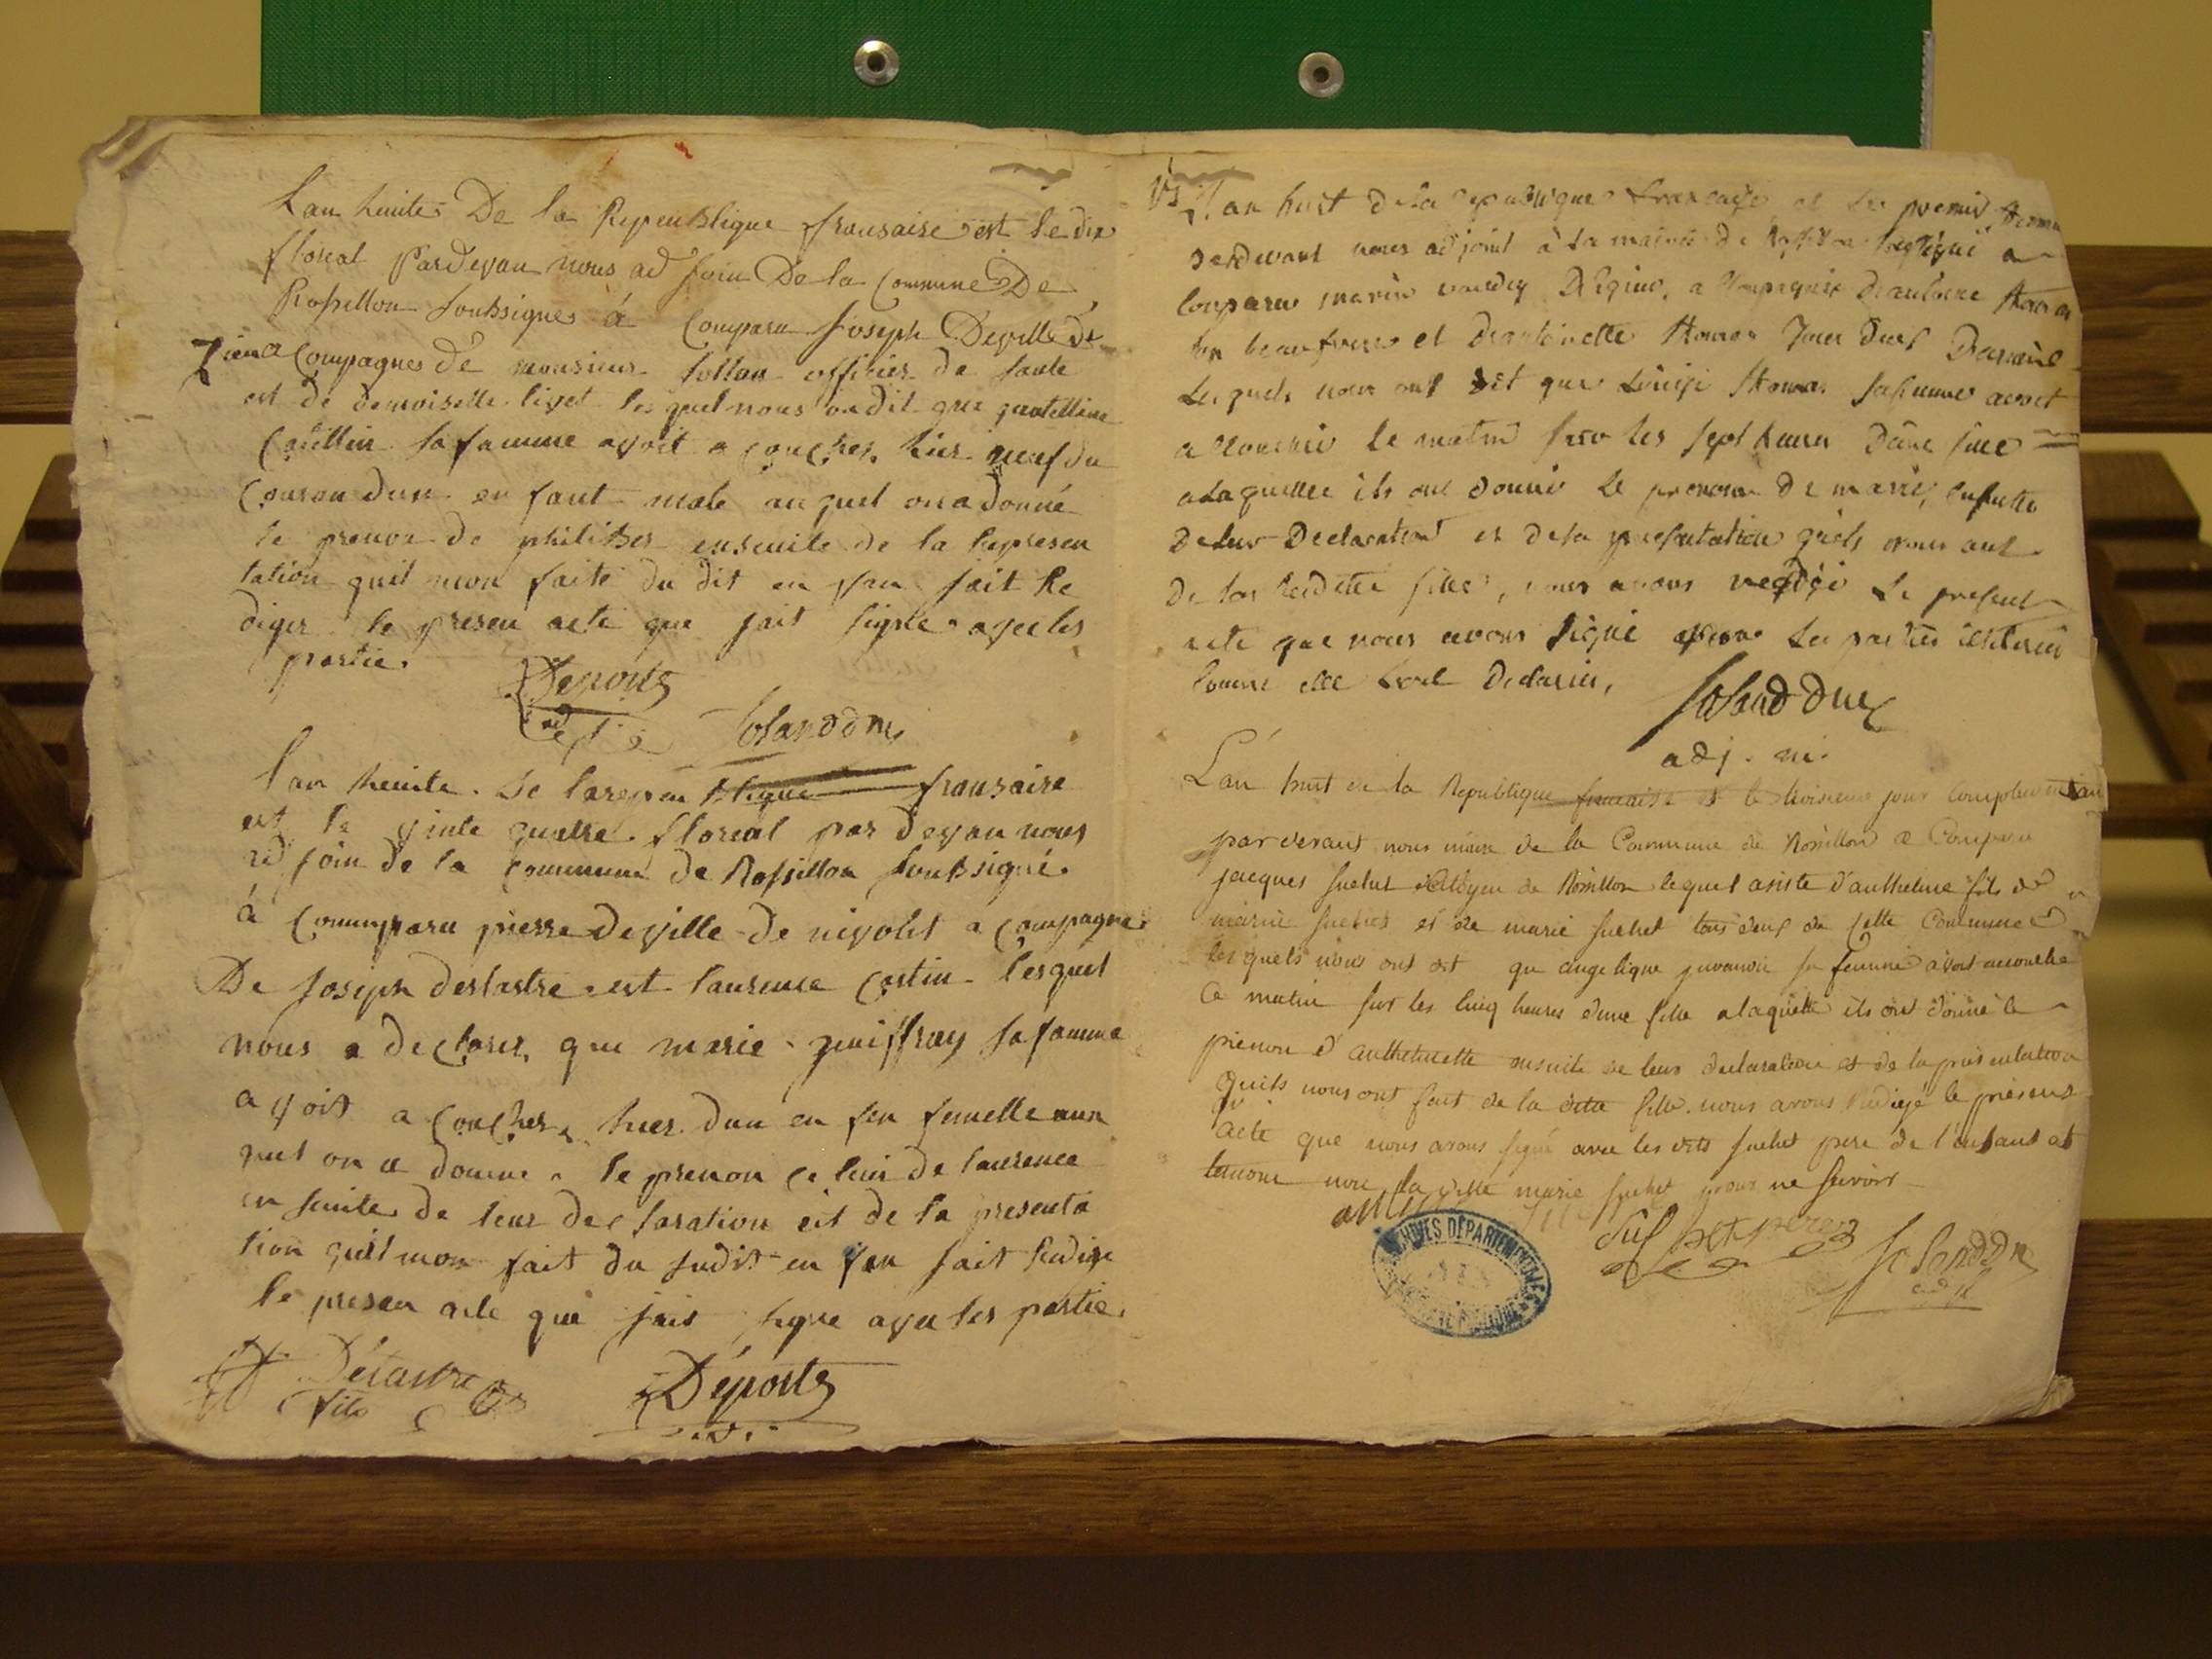 Lan huite De la Republique fransaise est le dix
floreal Pardevan nous ad join De la Commune De
Rossillon soubsignes á Comparu Joseph Deville de
a Compagnes de monsieur sollan officier de sante
est de demoiselle livet les quel nous on dit que
sa famme avoit a coucher hier neuf du
Couran dun en fant male au quel on a donné
le prenon de philiber ensuite de la Represen
tation quil mon faite du dit en fan jait Re
diger le presen acte que jait signe avec les
partie.
Deports
adj Solanddne
l'an heuite De larepeublique fransaire
est le vinte quatre floreal par devan nous
ad join de la commune de Rossillon soubsigné
á Commparu pierre Deville de nivolet a compagne
De Joseph delastre est laurence Costin lesquel
nous a declarer que marie geuiffray sa famme
avoit a coucher hier dun en fen femelle aux
quel on a donne le prenon celuis de laurence
en suite de leur declaration eit de la presenta
tion quil mon fait du sudit en fen jait Redige
le presen acte que jait signe avec les partie
Delastre
fils Deports
L'an huit de la republique francaise et le premier
perdevant nous adjoint à la mairie de Rossillon soussigné a
comparu marin accompagné d'antoine
son beaufrere et d'antoinette thomas tous deux
Lesquels nous ont dit que Louise thomas safemme avoit
accouché le matin sur les sept heures d'une fille
a laquelle ils ont donné le prenom de marie, ensuitte
de leur Declaration et de la presentation quils nous ont
de la susditte fille, nous avons redigé le present
acte que nous avons signé les parties illiterés
comme elle L'ont declarées,
Solanddne
adj. m.
L'an huit de la Republique francaise et le troisieme jour complementaire
par devant nous maire de la Commune de Rossillon a Comparu
jacques suchet de Rossillon lequel asisté d'anthelme fils de
suchet et de marie suchet tous deux de cette Commune
lesquels nous ont dit qu angelique sa femme avoit accouché
Ce matin sur les cinq heures d'une fille a laquelle ils ont donné le
prénom d'anthelmette ensuite de leur declaration et de la présentation
quils nous ont fait de la ditte fille nous avons Redigé le présent
acte que nous avons signé avec les dits suchet pere de l'enfant et
temoins non la ditte marie suchet pour ne scavoir
Suchet pere Solanddne
adj
ARCHIVES DÉPARTEMENTALES